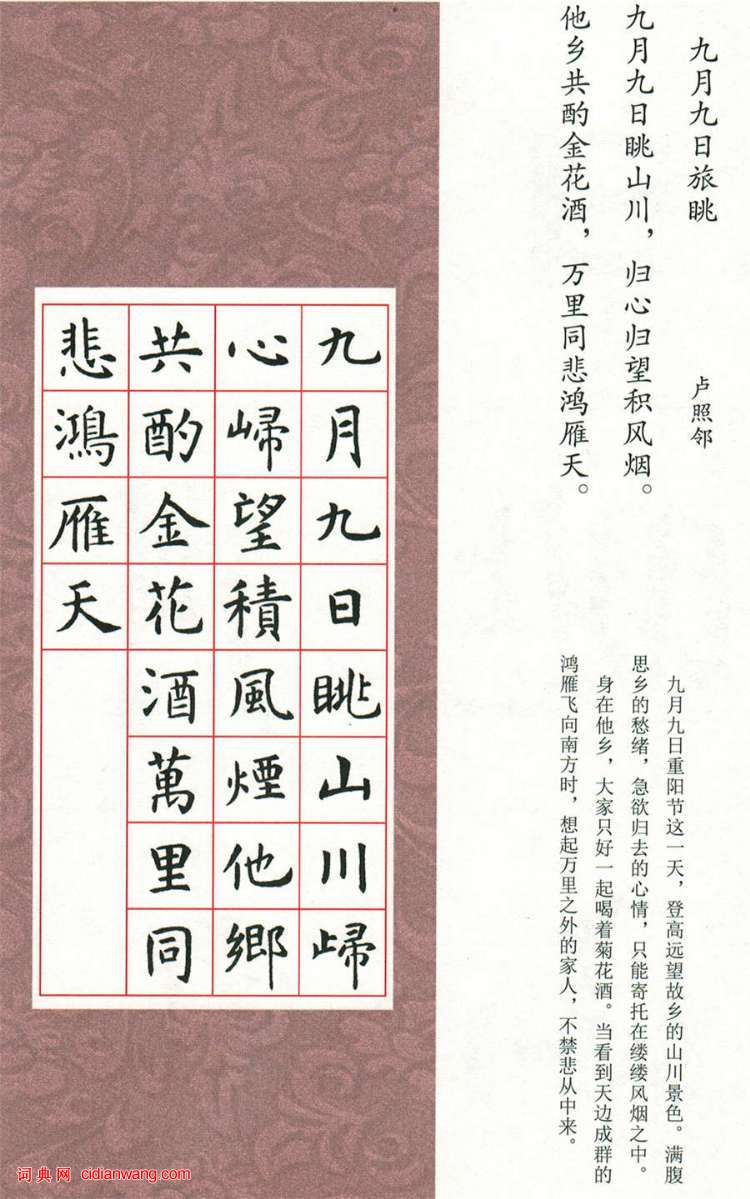 九月九日旅眺
卢照邻
九月九日眺山川，归心归望积风烟。
他乡共酌金花酒，万里同悲鸿雁天。
九月九日重阳节这一天，登高远望故乡的山川景色。满腹
思乡的愁绪，急欲归去的心情，只能寄托在缕缕风烟之中。
身在他乡，大家只好一起喝着菊花酒。当看到天边成群的
鸿雁飞向南方时，想起万里之外的家人，不禁悲从中来。
九月九日眺山川㱕
心㱕望積風煙他鄉
共酌金花酒萬里同
悲鴻雁天
词典网 cidianwang.com